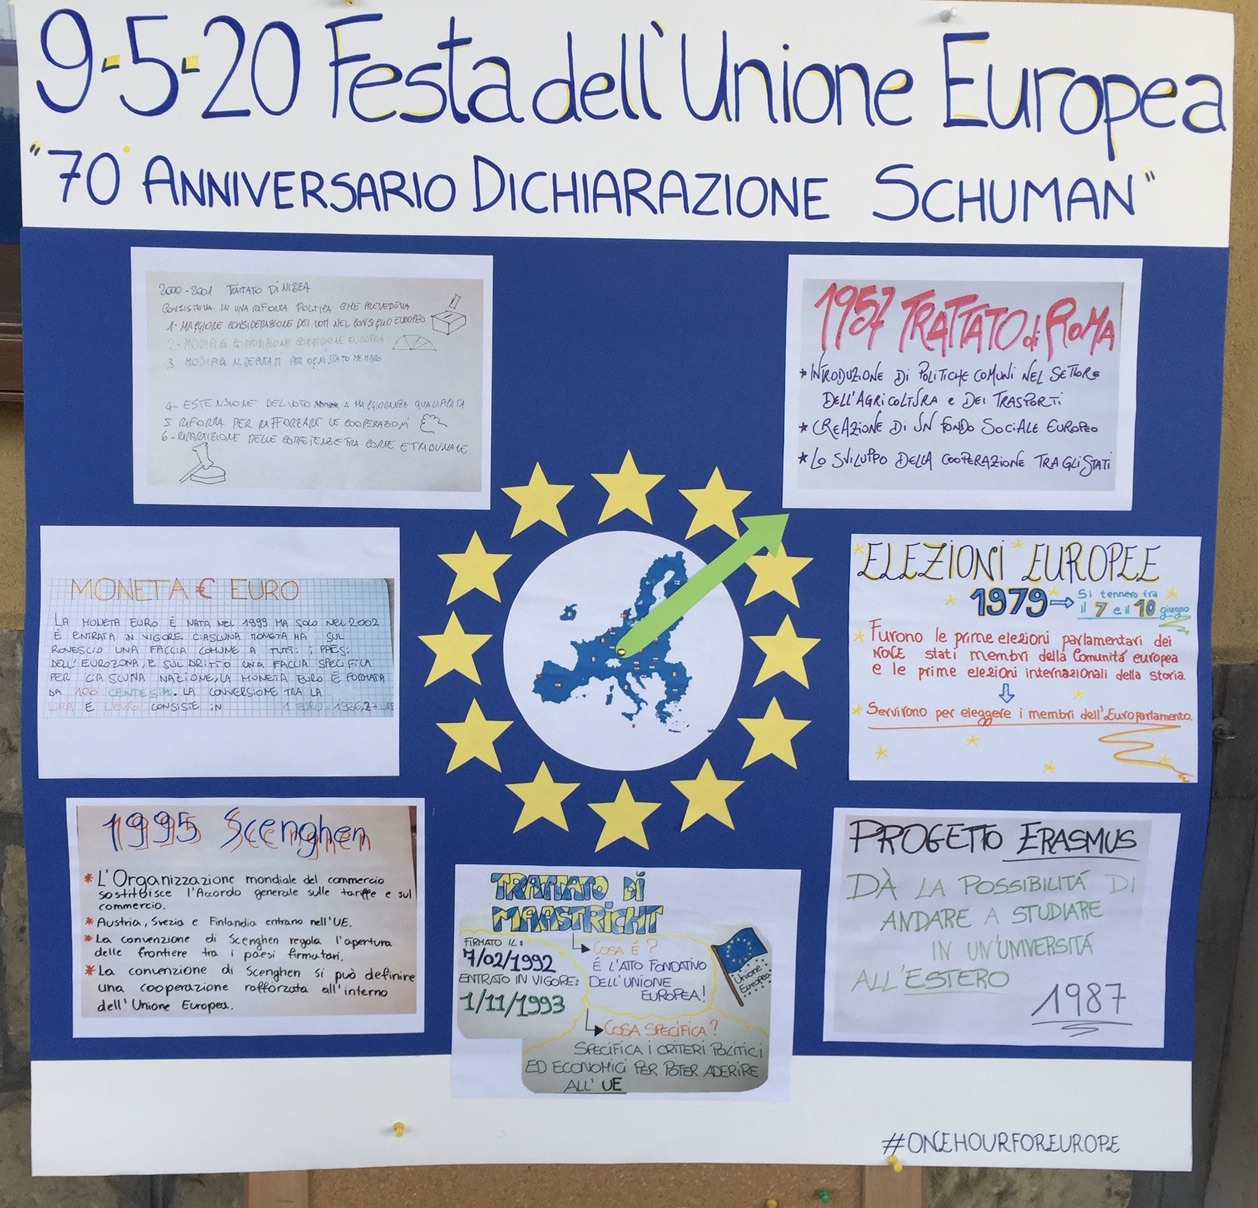 9-5-20 Festa dell'Unione Europea
"70° ANNIVERSARIO DICHIARAZIONE SCHUMAN"
2000-2001 TRATTATO DI NIZZA
CONSISTEVA IN UNA RIFORMA POLITICA CHE PREVEDEVA
1- MAGGIORE CONSIDERAZIONE DEI VOTI NEL CONSIGLIO EUROPEO
2- MODIFICA COMPOSIZIONE COMMISSIONE EUROPEA
3 MODIFICA N. DEPUTATI PER OGNI STATO MEMBRO
4- ESTENSIONE DEL VOTO A MAGGIORANZA QUALIFICATA
5 RIFORMA PER RAFFORZARE LE COOPERAZIONI
6- RIPARTIZIONE DELLE COMPETENZE TRA CORTE E TRIBUNALE
1957 TRATTATO di ROMA
* INRODUZIONE DI POLITICHE COMUNI NEL SETTORE
DELL'AGRICOLTURA e DEI TRASPORTI
* CREAZIONE DI UN FONDO SOCIALE EUROPEO
* LO SVILUPPO DELLA COOPERAZIONE TRA GLI STATI
MONETA € EURO
LA MONETA EURO È NATA NEL 1999 MA SOLO NEL 2002
È ENTRATA IN VIGORE. CIASCUNA MONETA HA SUL
ROVESCIO UNA FACCIA COMUNE A TUTTI I PAESI
DELL'EUROZONA, E SUL DRITTO UNA FACCIA SPECIFICA
PER CIASCUNA NAZIONE, LA MONETA EURO È FORMATA
DA 100 CENTESIMI. LA CONVERSIONE TRA LA
LIRA E L'EURO CONSISTE IN 1 EURO = 1936,27 LIRE
ELEZIONI EUROPEE
1979 → Si tennero tra
il 7 e il 10 giugno
* Furono le prime elezioni parlamentari dei
NOVE stati membri della Comunità europea
e le prime elezioni internazionali della storia.
* Servirono per eleggere i membri dell'Europarlamento.
1995 Scenghen
* L'Organizzazione mondiale del commercio
sostituisce l'Accordo generale sulle tariffe e sul
commercio.
* Austria, Svezia e Finlandia entrano nell'UE.
* La convenzione di Scenghen regola l'apertura
delle frontiere tra i paesi firmatari.
* La convenzione di Scenghen si può definire
una cooperazione rafforzata all'interno
dell'Unione Europea.
TRATTATO DI
MAASTRICHT
FIRMATO IL:
7/02/1992
ENTRATO IN VIGORE:
1/11/1993
COSA È?
È L'ATTO FONDATIVO
DELL'UNIONE
EUROPEA!
Unione
Europea
COSA SPECIFICA?
SPECIFICA I CRITERI POLITICI
ED ECONOMICI PER POTER ADERIRE
ALL' UE
PROGETTO ERASMUS
DÀ LA POSSIBILITÁ DI
ANDARE A STUDIARE
IN UN'UNIVERSITÁ
ALL'ESTERO
1987
#ONEHOURFOREUROPE